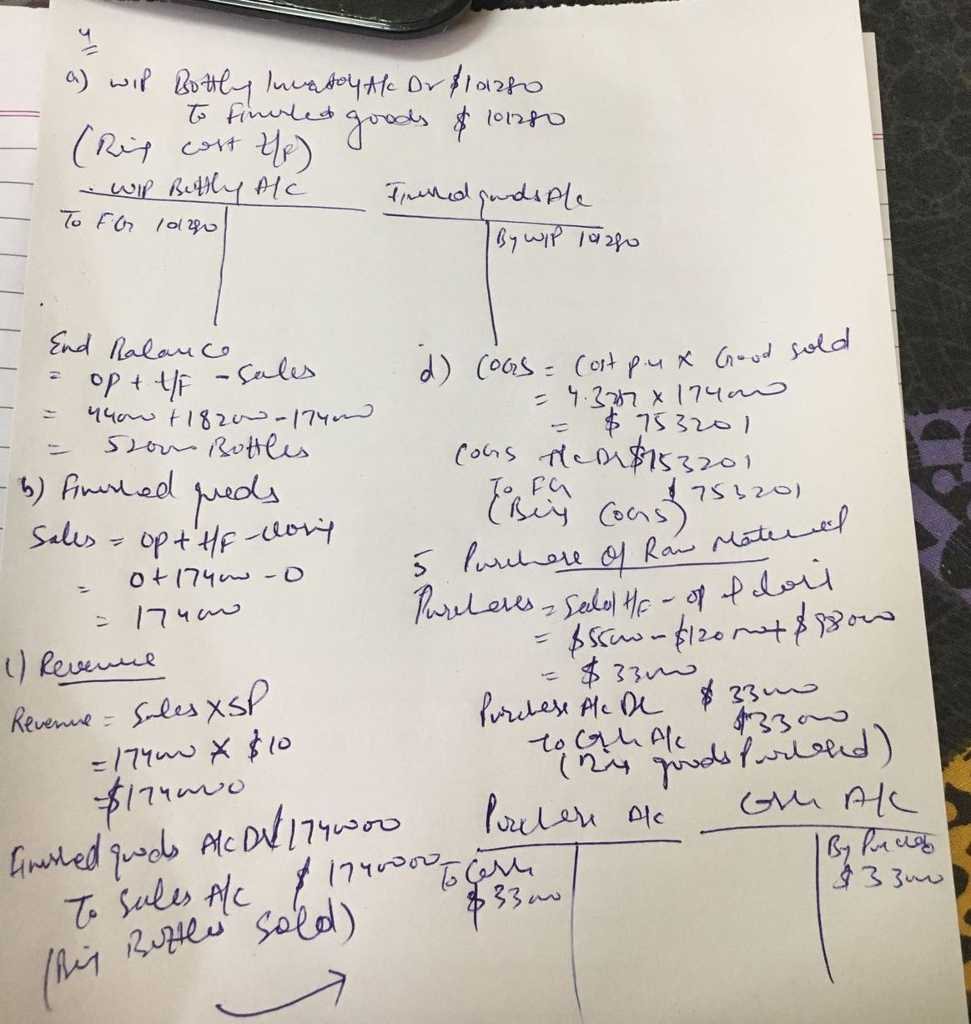 4
a) WIP Bottling Inventory A/c Dr $101280
To Finished goods $ 101280
(Being cost t/f)
WIP Bottling A/c
To FG 101280
Finished goods A/c
By WIP 101280
End Balance
= OP + t/F - Sales
= 44000 + 182000 - 174000
= 52000 Bottles
b) Finished goods
Sales = OP + t/F - closing
= 0 + 174000 - 0
= 174000
c) Revenue
Revenue = Sales X SP
= 174000 X $10
= $1740000
Finished goods A/c Dr $1740000
To Sales A/c $ 1740000
(Being Bottles Sold)
d) COGS = Cost p.u X Good sold
= 4.3287 X 174000
= $ 753201
COGS A/c Dr $753201
To FG $ 753201
(Being COGS)
5 Purchase Of Raw Material
Purchases = t/F - op + closing
= $55000 - $120000 + $98000
= $ 33000
Purchase A/c Dr $ 33000
To Cash A/c $33000
(Being goods Purchased)
Purchase A/c
To Cash
$33000
Cash A/c
By Purchases
$33000